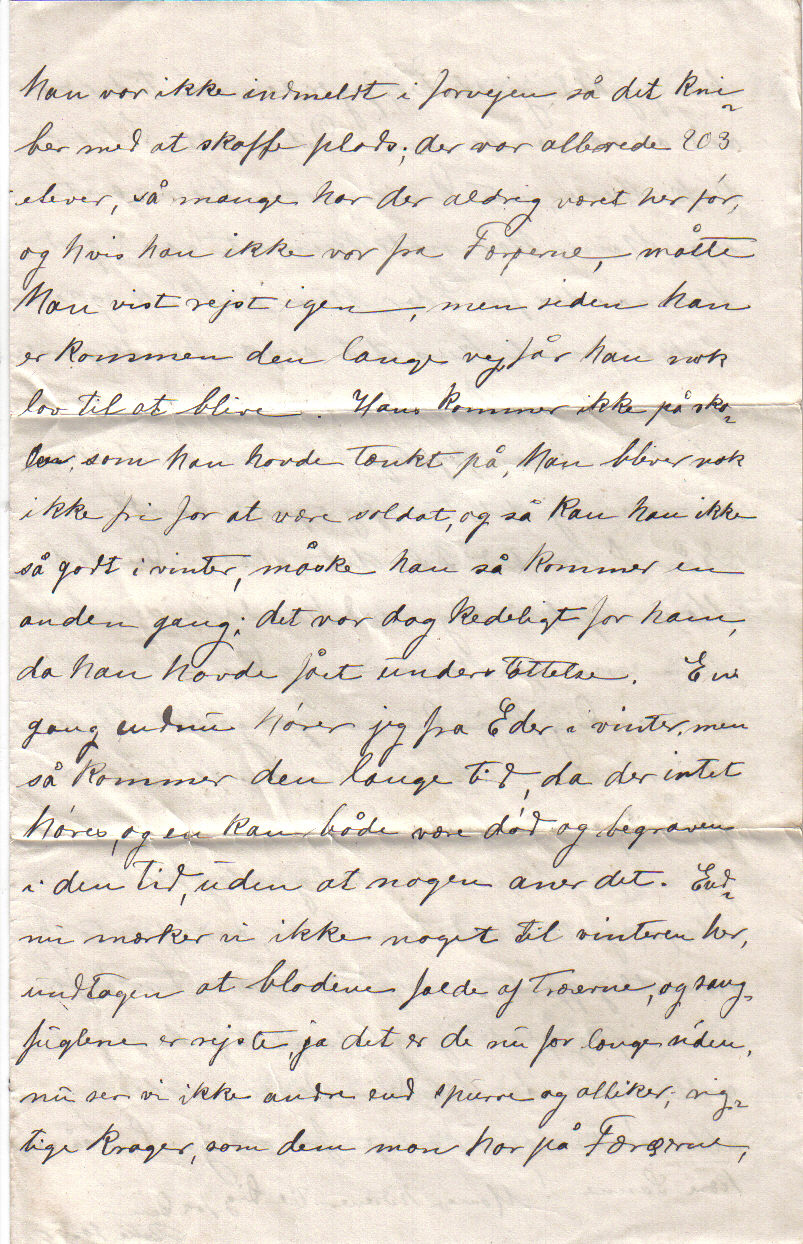 han var ikke indmeldt i forvejen så det kni-
ber med at skaffe plads; der var allerede 203
elever, så mange har der aldrig været her før,
og hvis han ikke var fra Færøerne, måtte
han vist rejst igen, men siden han
er kommen den lange vej, får han nok
lov til at blive. Hans kommer ikke på sko-
len, som han havde tænkt på, han bliver nok
ikke fri for at være soldat, og så kan han ikke
så godt i vinter, måske han så kommer en
anden gang; det var dog kedeligt for ham,
da han havde fået understøttelse. En
gang endnu hører jeg fra Eder i vinter, men
så kommer den lange tid, da der intet
høres, og en kan både være død og begraven
i den tid, uden at nogen aner det. End-
nu mærker vi ikke noget til vinteren her,
undtagen at bladene falde af træerne, og sang-
fuglene er rejste, ja det er de nu for længe siden,
nu ser vi ikke andre end spurve og alliker; rig-
tige krager, som dem man har på Færøerne,